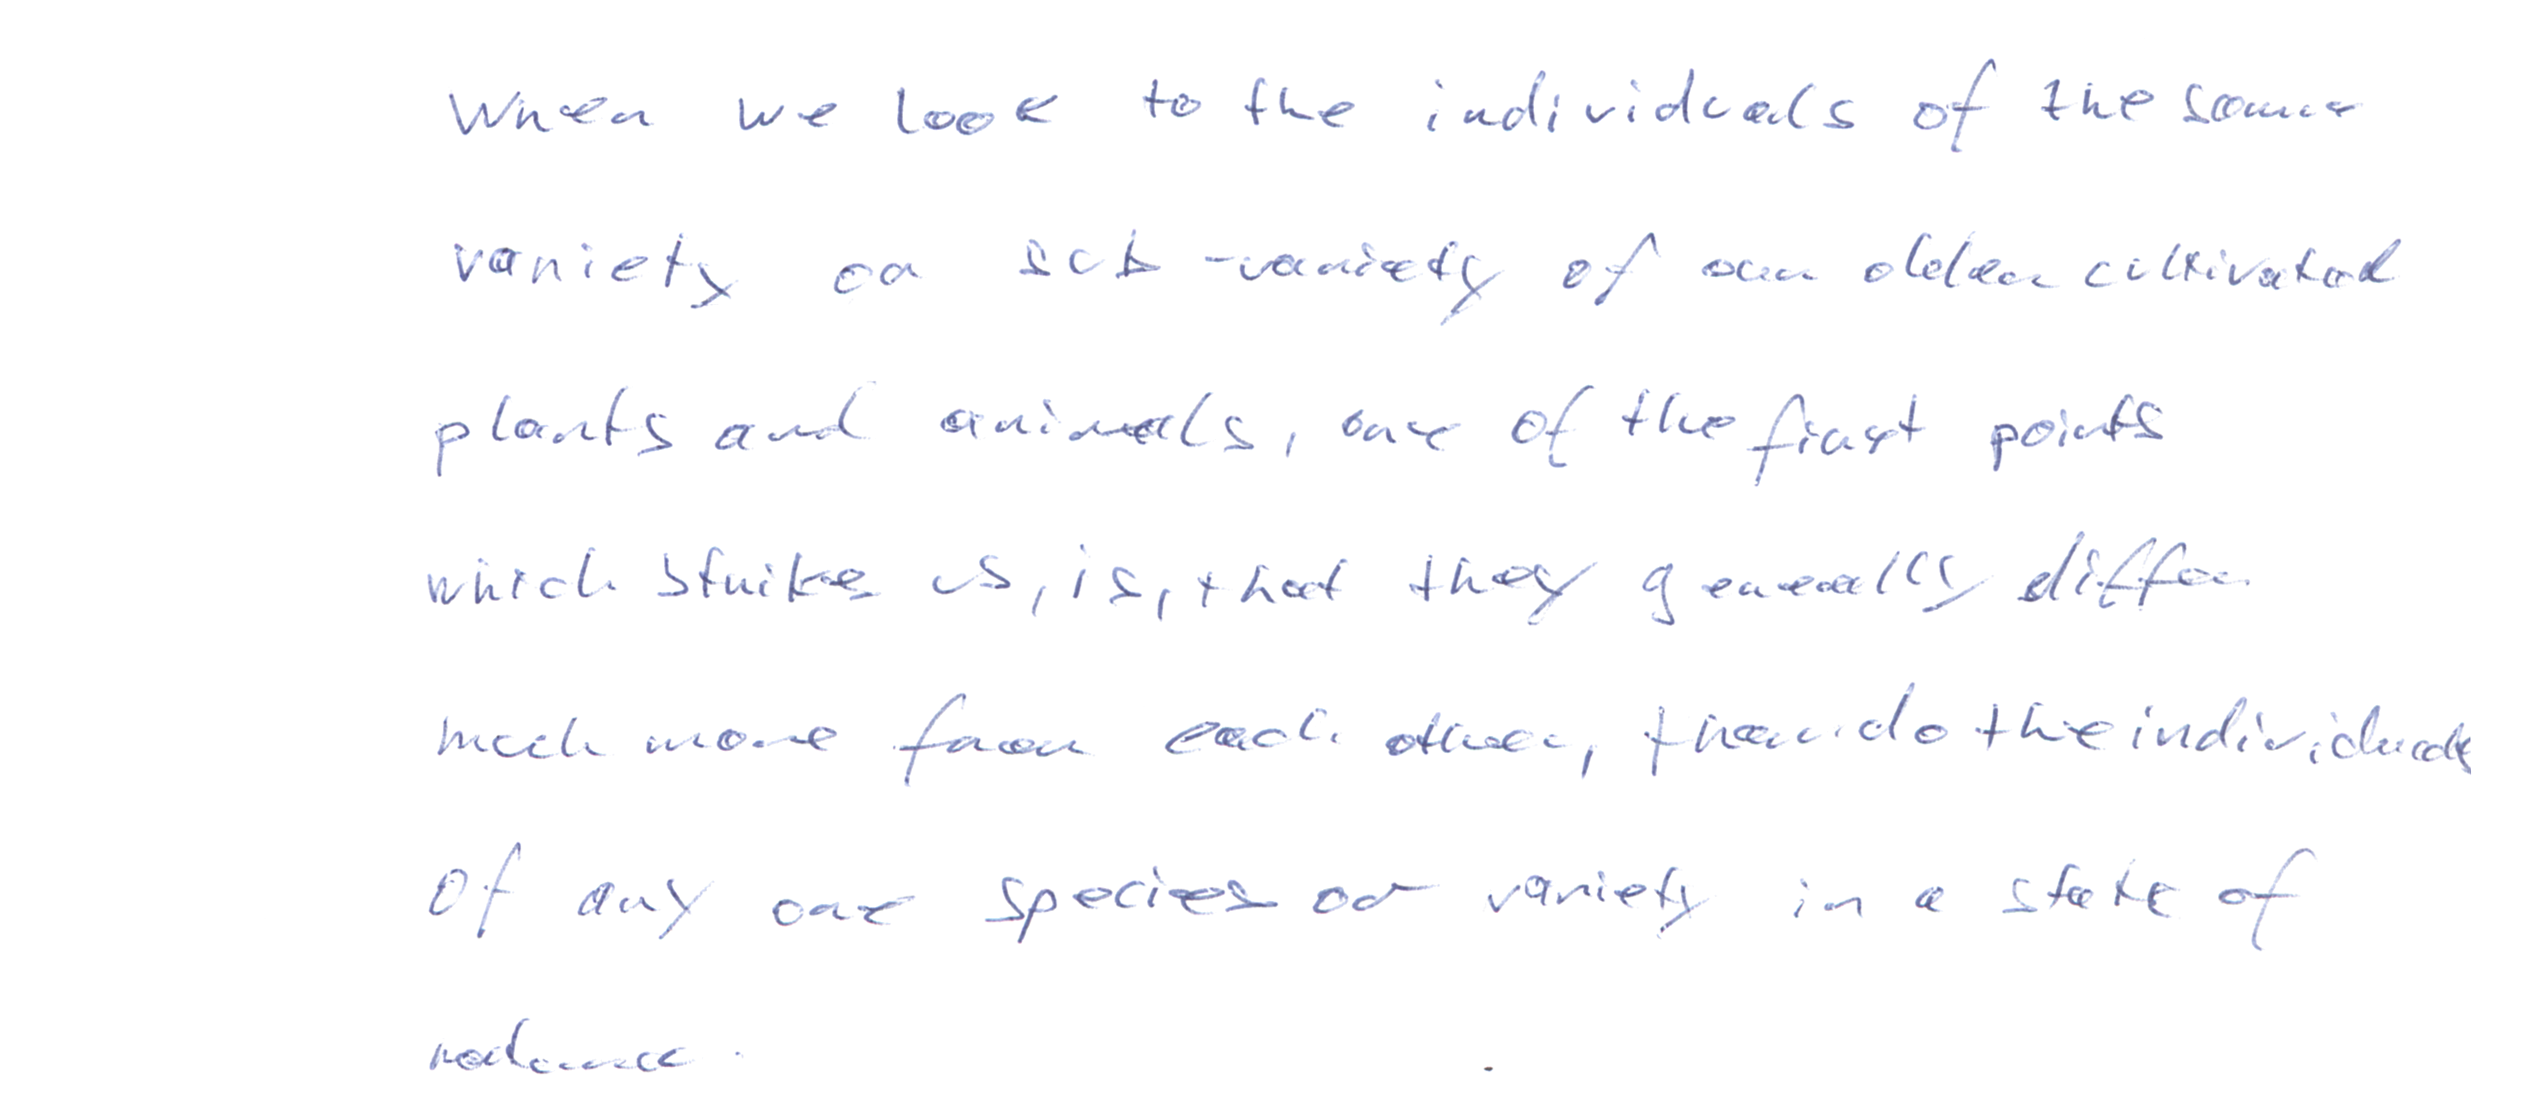 When we look to the individuals of the same
variety or sub-variety of our older cultivated
plants and animals, one of the first points
which strikes us, is, that they generally differ
much more from each other, than do the individuals
of any one species or variety in a state of
nature.